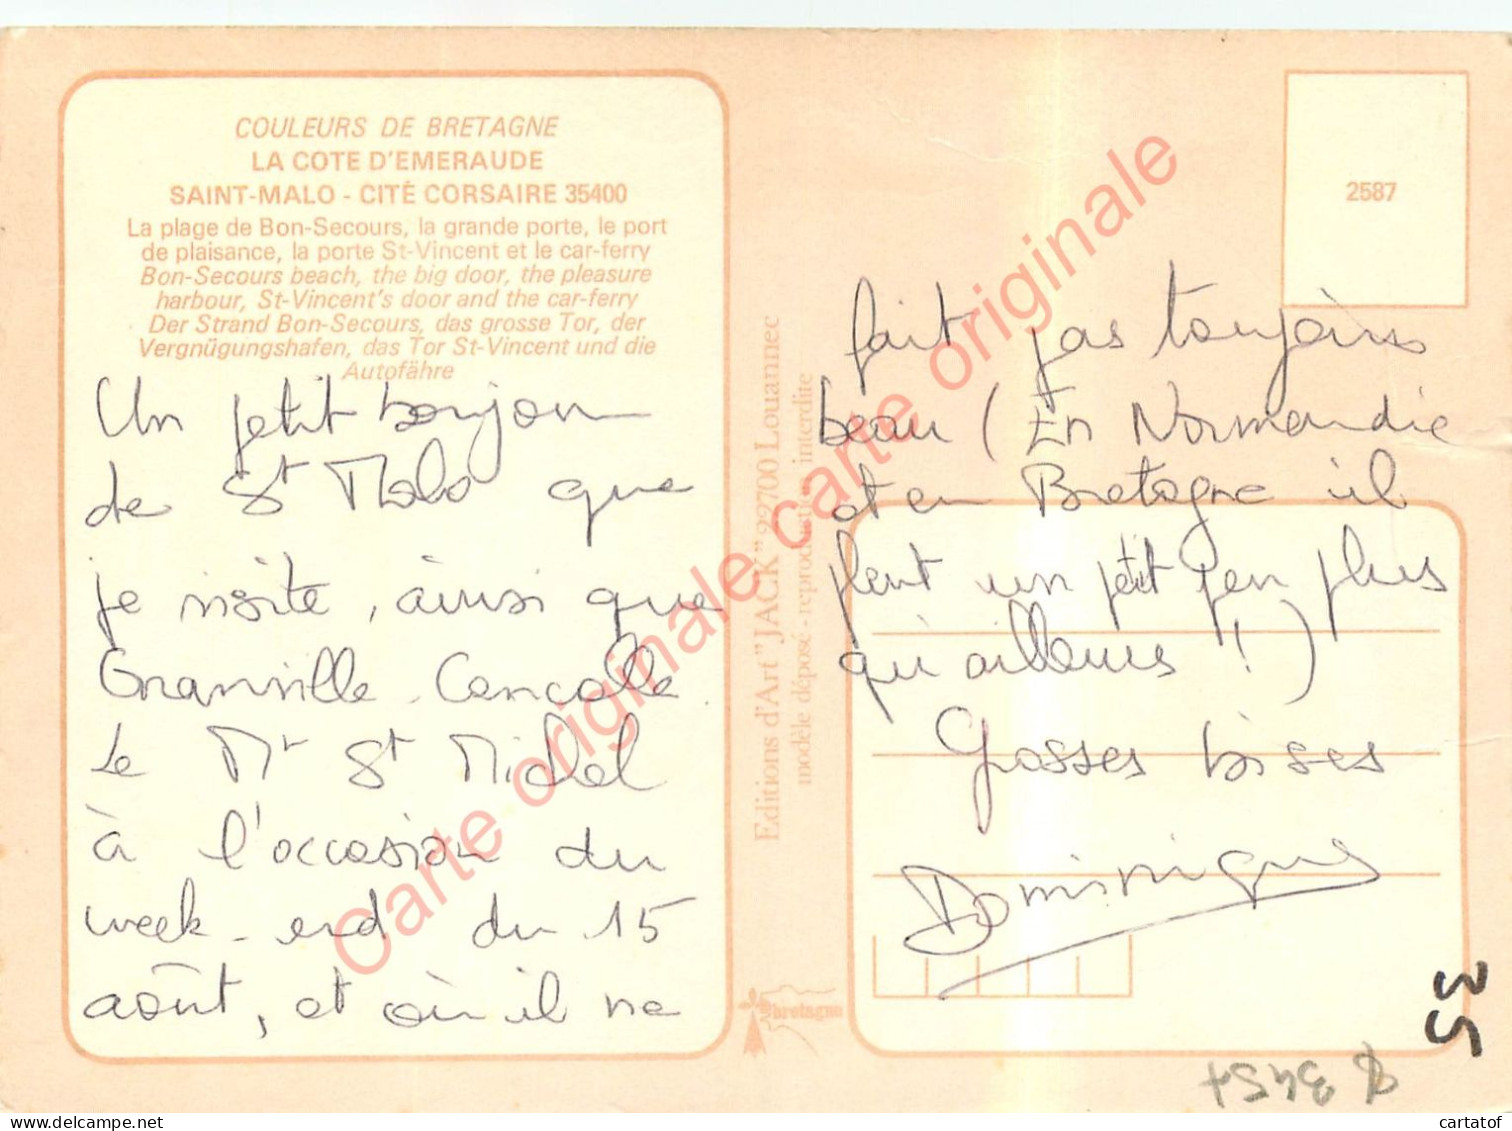 COULEURS DE BRETAGNE
LA COTE D'EMERAUDE
SAINT-MALO - CITÉ CORSAIRE 35400
La plage de Bon-Secours, la grande porte, le port
de plaisance, la porte St-Vincent et le car-ferry
Bon-Secours beach, the big door, the pleasure
harbour, St-Vincent's door and the car-ferry
Der Strand Bon-Secours, das grosse Tor, der
Vergnügungshafen, das Tor St-Vincent und die
Autofähre
Un petit bonjour
de St Malo que
je visite, ainsi que
Granville Cancalle
Le Mt St Michel
à l'occasion du
week-end du 15
août, et où il ne
Editions d'Art "JACK" 22700 Louannec
modèle déposé - reproduction interdite
bretagne
2587
fait pas toujours
beau (En Normandie
et en Bretagne il
pleut un petit peu plus
qu'ailleurs !)
Grosses bises
Dominique
Carte originale carte originale carte originale
delcampe.net
cartatof